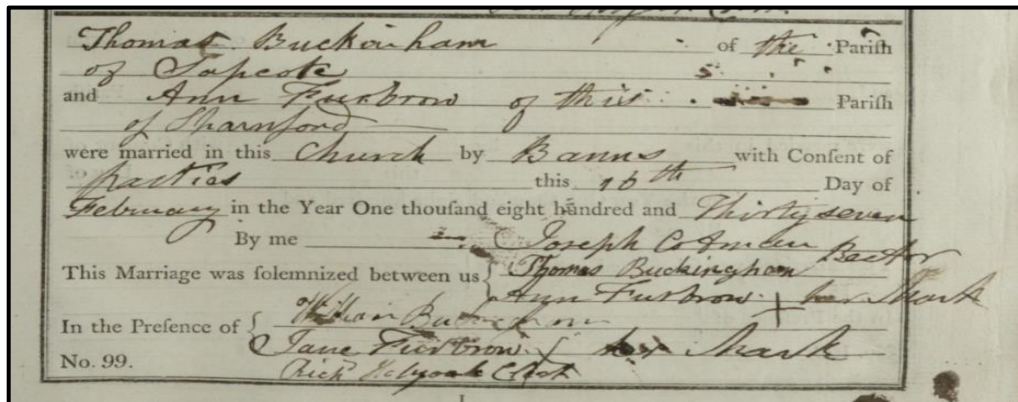 Thomas Buckinham of the Parish
of Sapcote
and Ann Furbrow of this Parish
of Sharnford
were married in this Church by Banns with Consent of
Parties this 16th Day of
February in the Year One thousand eight hundred and Thirty seven
By me Joseph Cotman Rector
This Marriage was solemnized between us { Thomas Buckingham
Ann Furbrow X her Mark
In the Presence of { William
Jane Furbrow X her Mark
No. 99.
Richd Clerk